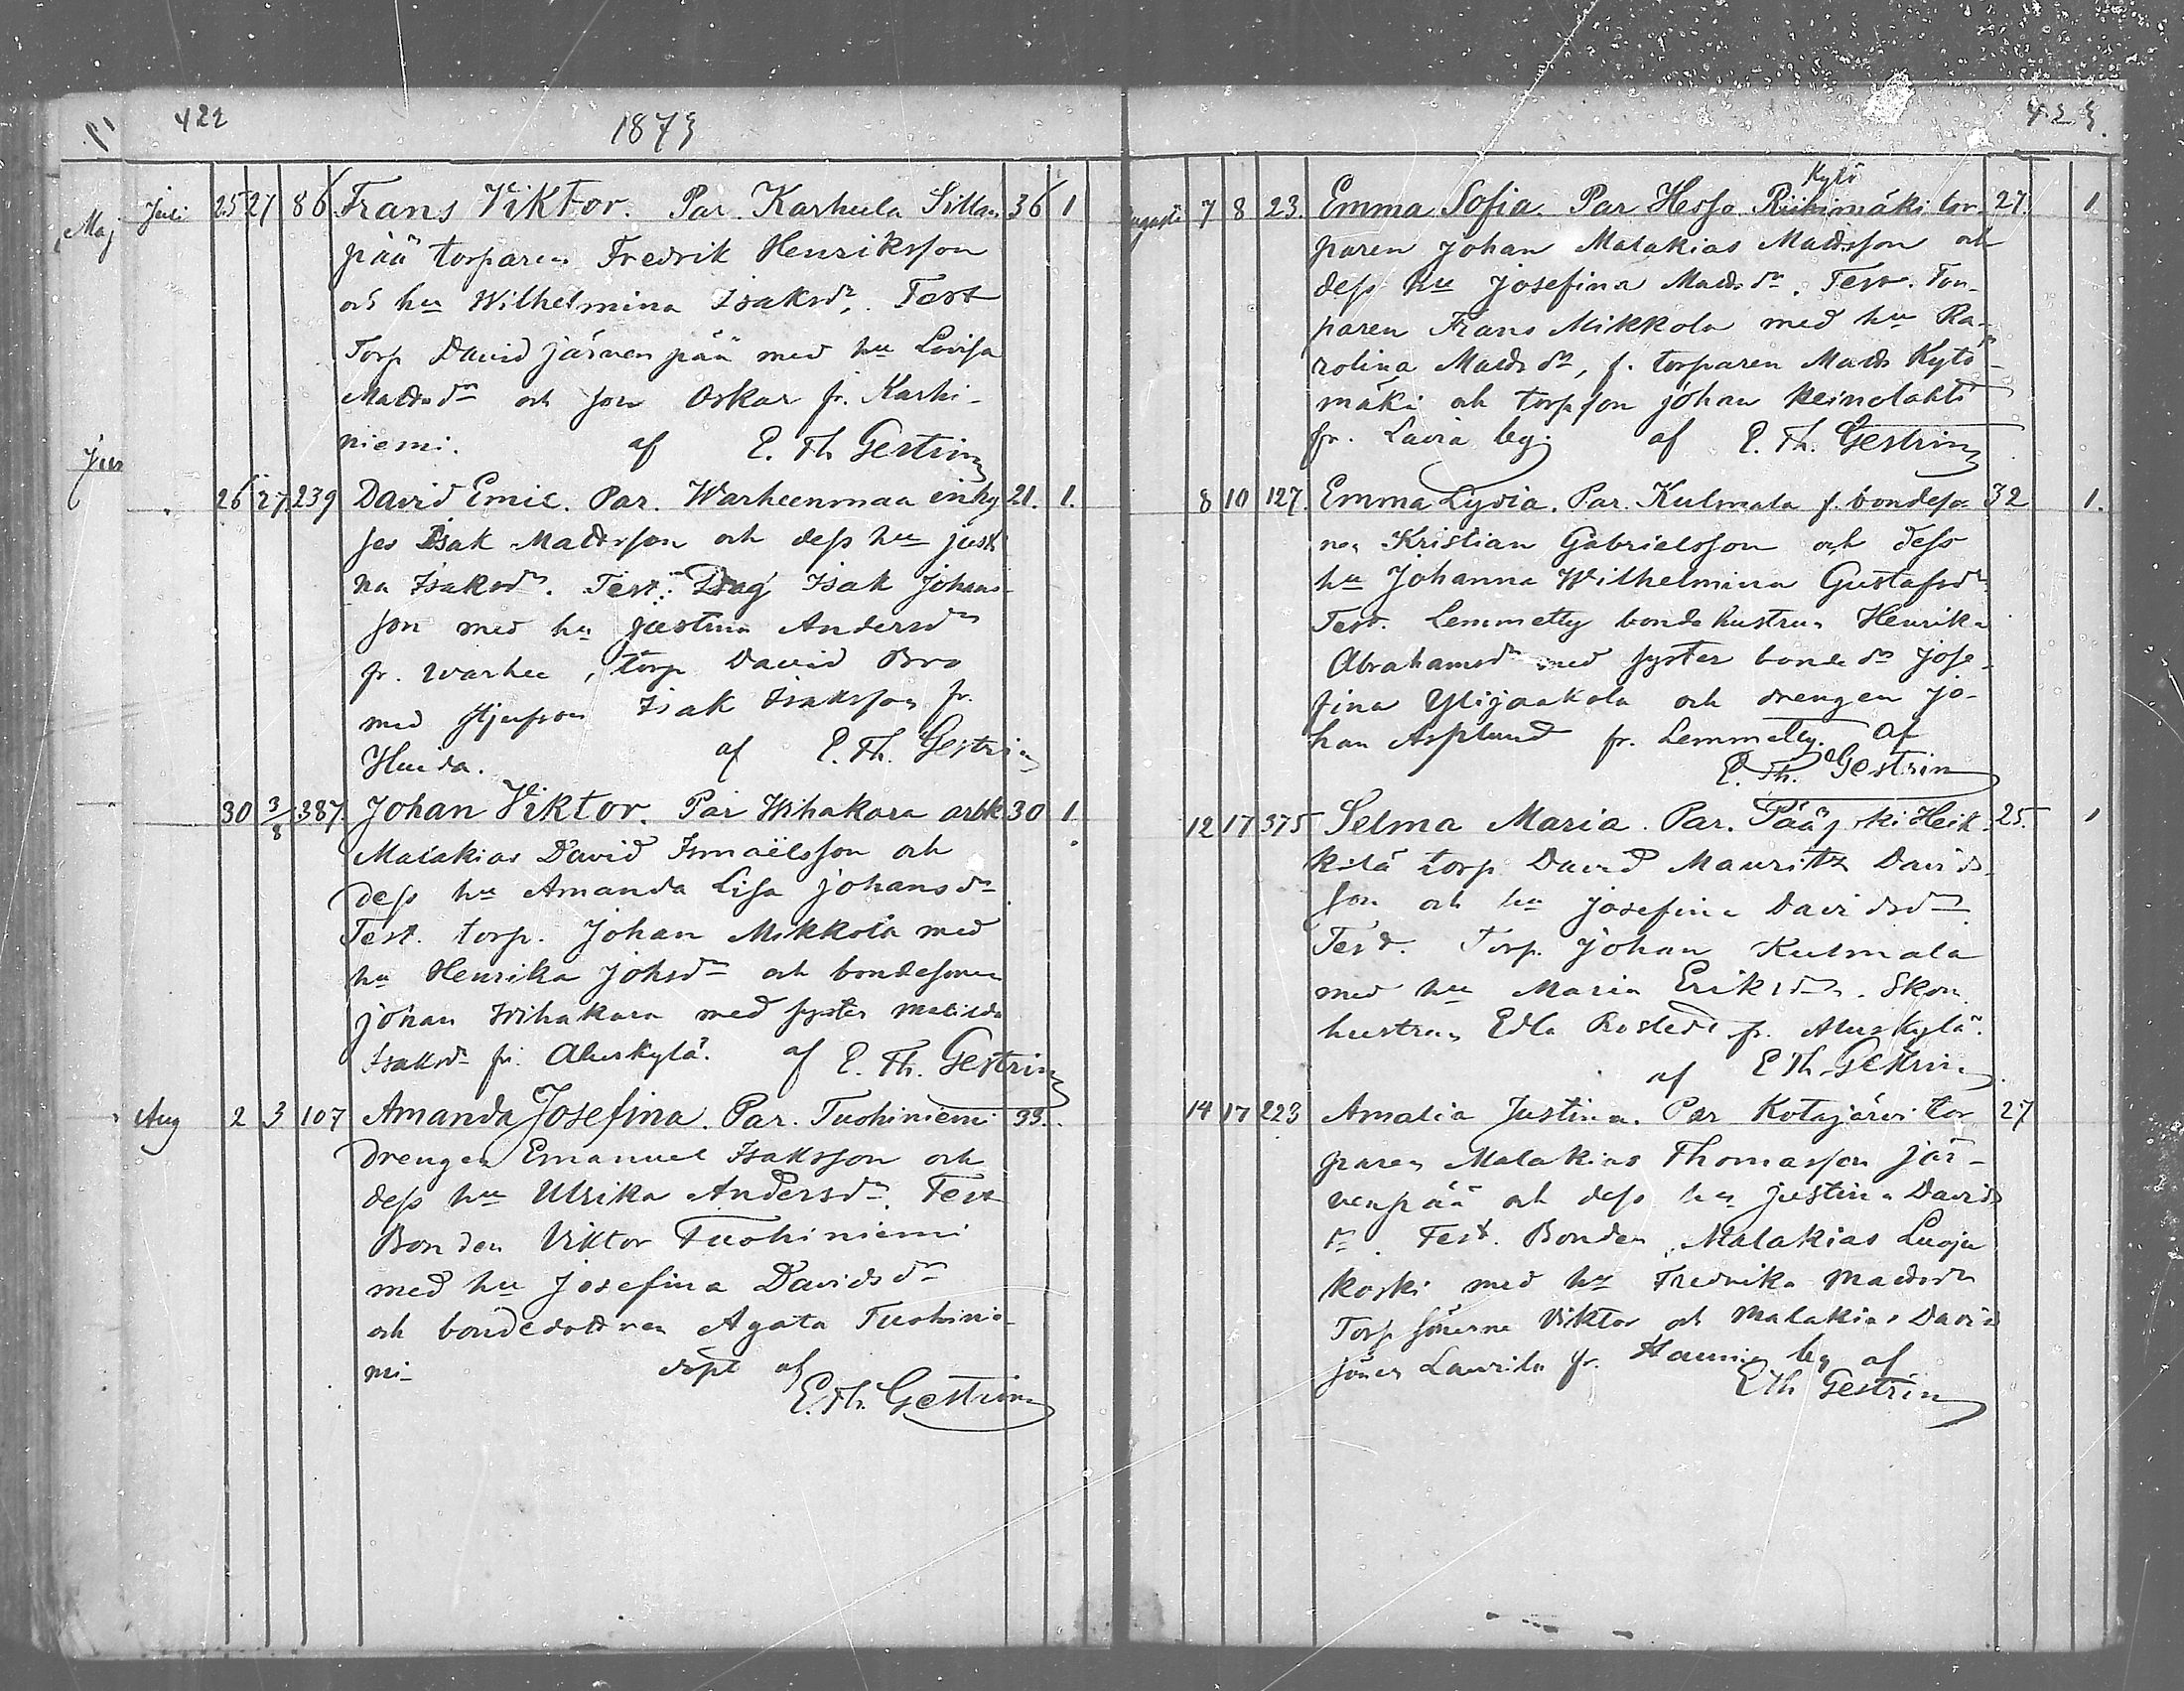 422
1873
Juli 25 27 86 Frans Viktor. Par. Karhula Sillan 36 1
Maj
pää torparen Fredrik Henriksson
och hu Wilhelmina Isaksdr. Test
Torp David Järvenpää med hu Lovisa
Mattsdr och son Oskar fr. Karhi-
niemi. af E. Th Gestrin
Jun
" 26 27 239 David Emil. Par. Warheenmaa inhy 21. 1.
ses Isak Mattsson och dess hu Justi
na Isaksdr. Test: Isak Johans-
son med hu Justina Andersdr
fr. Warhee, torp David Bro
med Isak Isaksson fr.
af E. Th. Gestrin
" 30 3/8 387. Johan Viktor. Par Wihakara arbk 30 1.
Malakias David Ismaëlsson och
dess hu Amanda Lisa Johansdr
Test. torp. Johan Mikkola med
hu Henrika Johsdr och bondesonen
Johan Wihakara med syster Matilda
Isaksdr fr. Aluskylä. af E. Th. Gestrin
Aug 2 3 107 Amanda Josefina. Par. Tuohiniemi 33.
Drengen Emanuel Isaksson och
dess hu Ulrika Andersdr. Test
Bonden Viktor Tuohiniemi
med hu Josefina Davidsdr
och bondedottren Agata Tuohinie-
mi döpt af
E. Th. Gestrin
423.
Kytö
Augusti 7 8 23. Emma Sofia. Par Hesso Riihimäki tor- 27. 1
paren Johan Malakias Mattsson och
dess hu Josefina Mattsdr. Test. Tor-
paren Frans Mikkola med hu Ka-
rolina Mattsdr, f. torparen Matts Kytö-
mäki och torpson Johan Reinolahti
fr. Lavia by. af E. Th. Gestrin
8 10 127. Emma Lydia. Par. Kulmala f. bondeso- 32 1.
nen Kristian Gabrielsson och dess
hu Johanna Wilhelmina Gustafsdr
Test. Lemmetty bondehustrun Henrika
Abrahamsdr med syster bondedr Jose-
fina Ylijaakola och drengen Jo-
han Asplund fr. Lemmetty. af
E. Th. Gestrin
12 17 375 Selma Maria. Par. Heik- 25. 1
kilä torp David Mauritz Davids-
son och hu Josefina Davidsdr
Test. Torp. Johan Kulmala
med hu Maria Eriksdr. Skom.
hustrun Edla Rostedt fr. Aluskylä.
af E Th. Gestrin
14 17 223 Amalia Justina. Par Kotajärvi tor 27
paren Malakias Thomasson Jär-
venpää och dess hu Justina Davids
dr. Test. Bonden Malakias Luoja
koski med hu Fredrika Mattsdr
Torp sönerne Viktor och Malakias David
söner Laurila fr. by af
E Th Gestrin